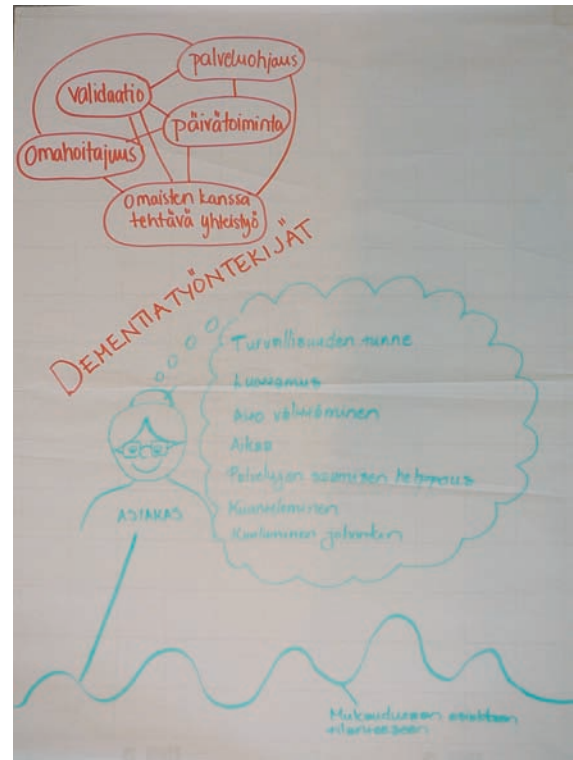 palveluohjaus
validaatio
päivätoiminta
omahoitajuus
omaisten kanssa
tehtävä yhteistyö
DEMENTIATYÖNTEKIJÄT
Turvallisuuden tunne
Luottamus
Aito välittäminen
Aikaa
Palvelujen saamisen helppous
Kuunteleminen
Kuuluminen johonkin
ASIAKAS
Mukaudutaan asiakkaan
tilanteeseen